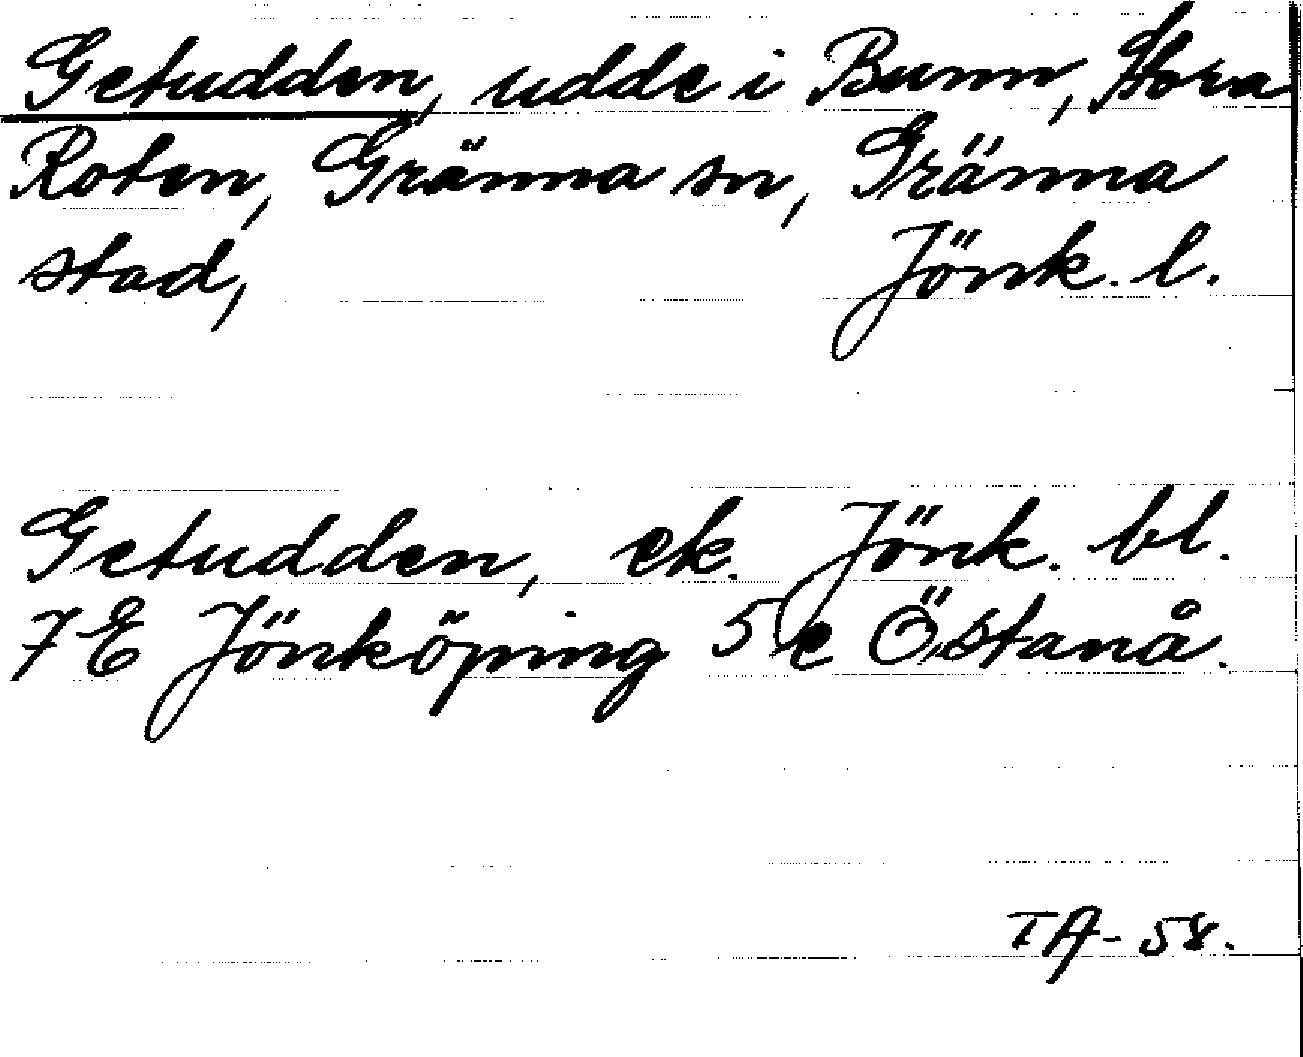 Getudden, udde i Bunn, Stora
Roten, Gränna sn, Gränna
stad, Jönk. l.
Getudden, ek. Jönk. bl.
7E Jönköping 5 e Östanå.
TA-58.